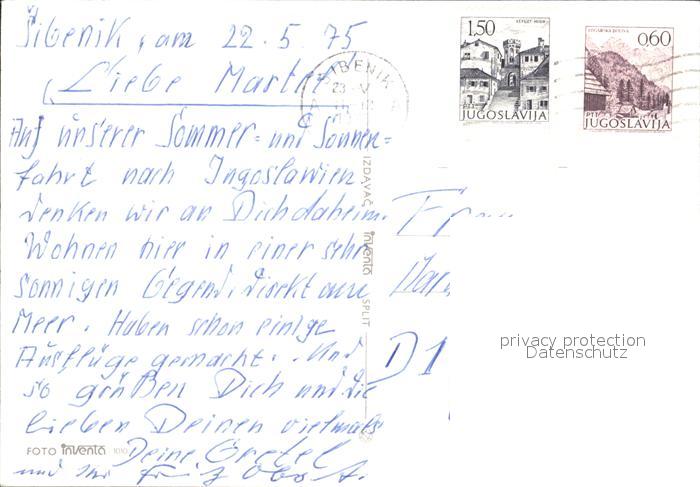 Šibenik, am 22.5.75
Liebe Martel
Auf unserer Sommer- und Sonnen=
fahrt nach Jugoslawien
denken wir an Dich daheim.
Wohnen hier in einer sehr
sonnigen Gegend, direkt am
Meer. Haben schon einige
Ausflüge gemacht. Und
so grüßen Dich und die
lieben Deinen vielmals
Deine Gretel
und Fritz
1,50
JUGOSLAVIJA
PTT
0,60
PTT
JUGOSLAVIJA
ŠIBENIK
23 V
IZDAVAČ inventa SPLIT
Frau
D 1
privacy protection
Datenschutz
FOTO inventa 1010